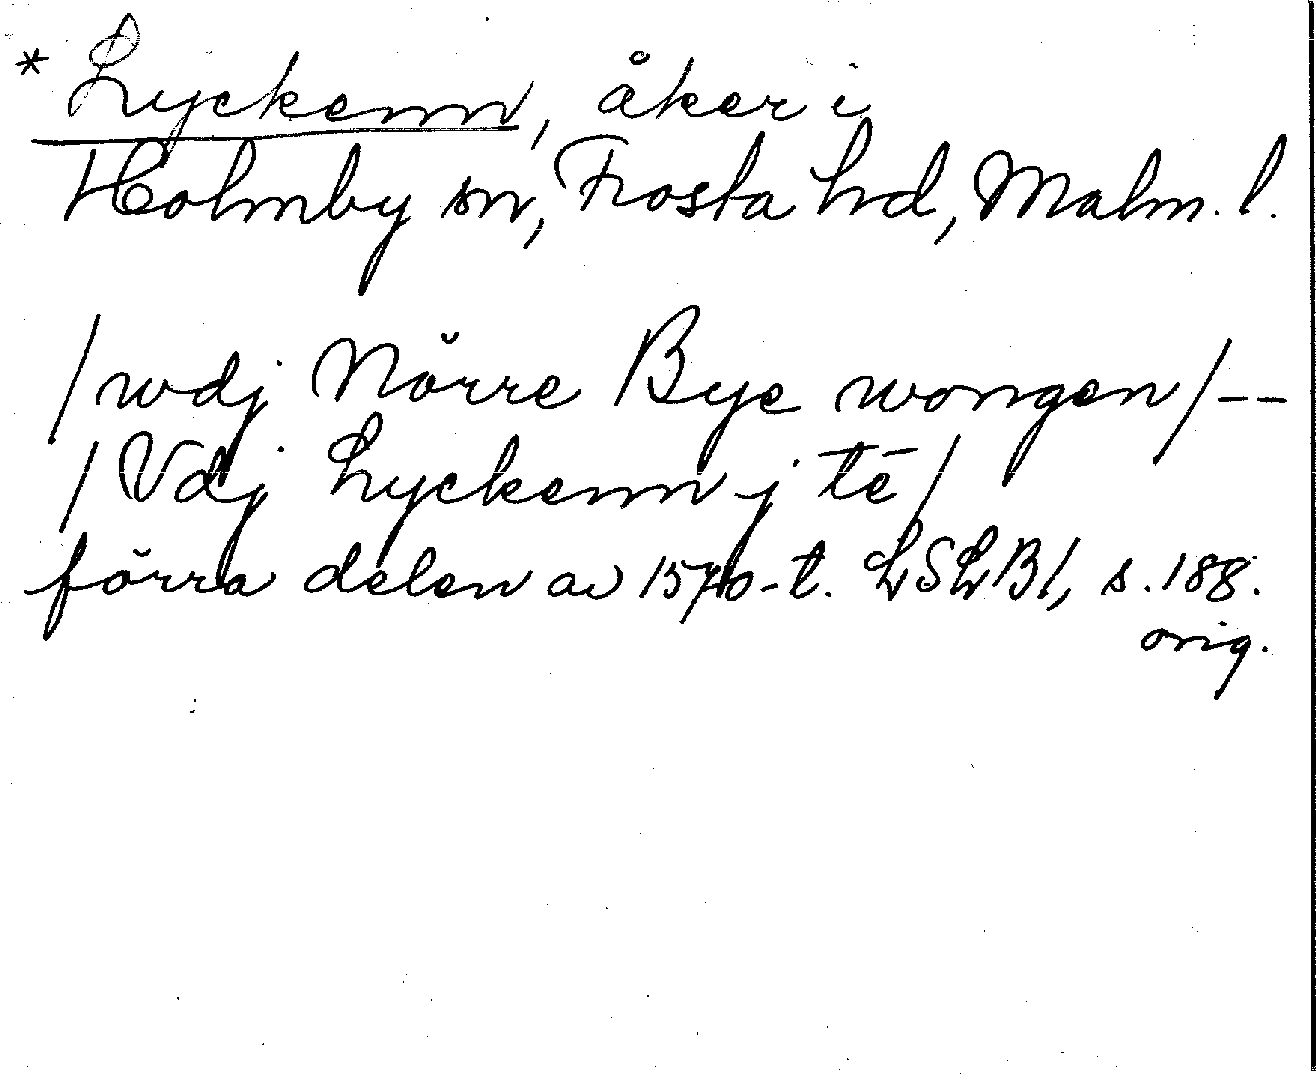 * Lyckenn, åker i
Holmby sn, Frosta hd, Malm. l.
/wdj Nörre Bye wongen/--
/Vdj Lyckenn j tē/
förra delen av 1570-t. LSLB1, s. 188.
orig.